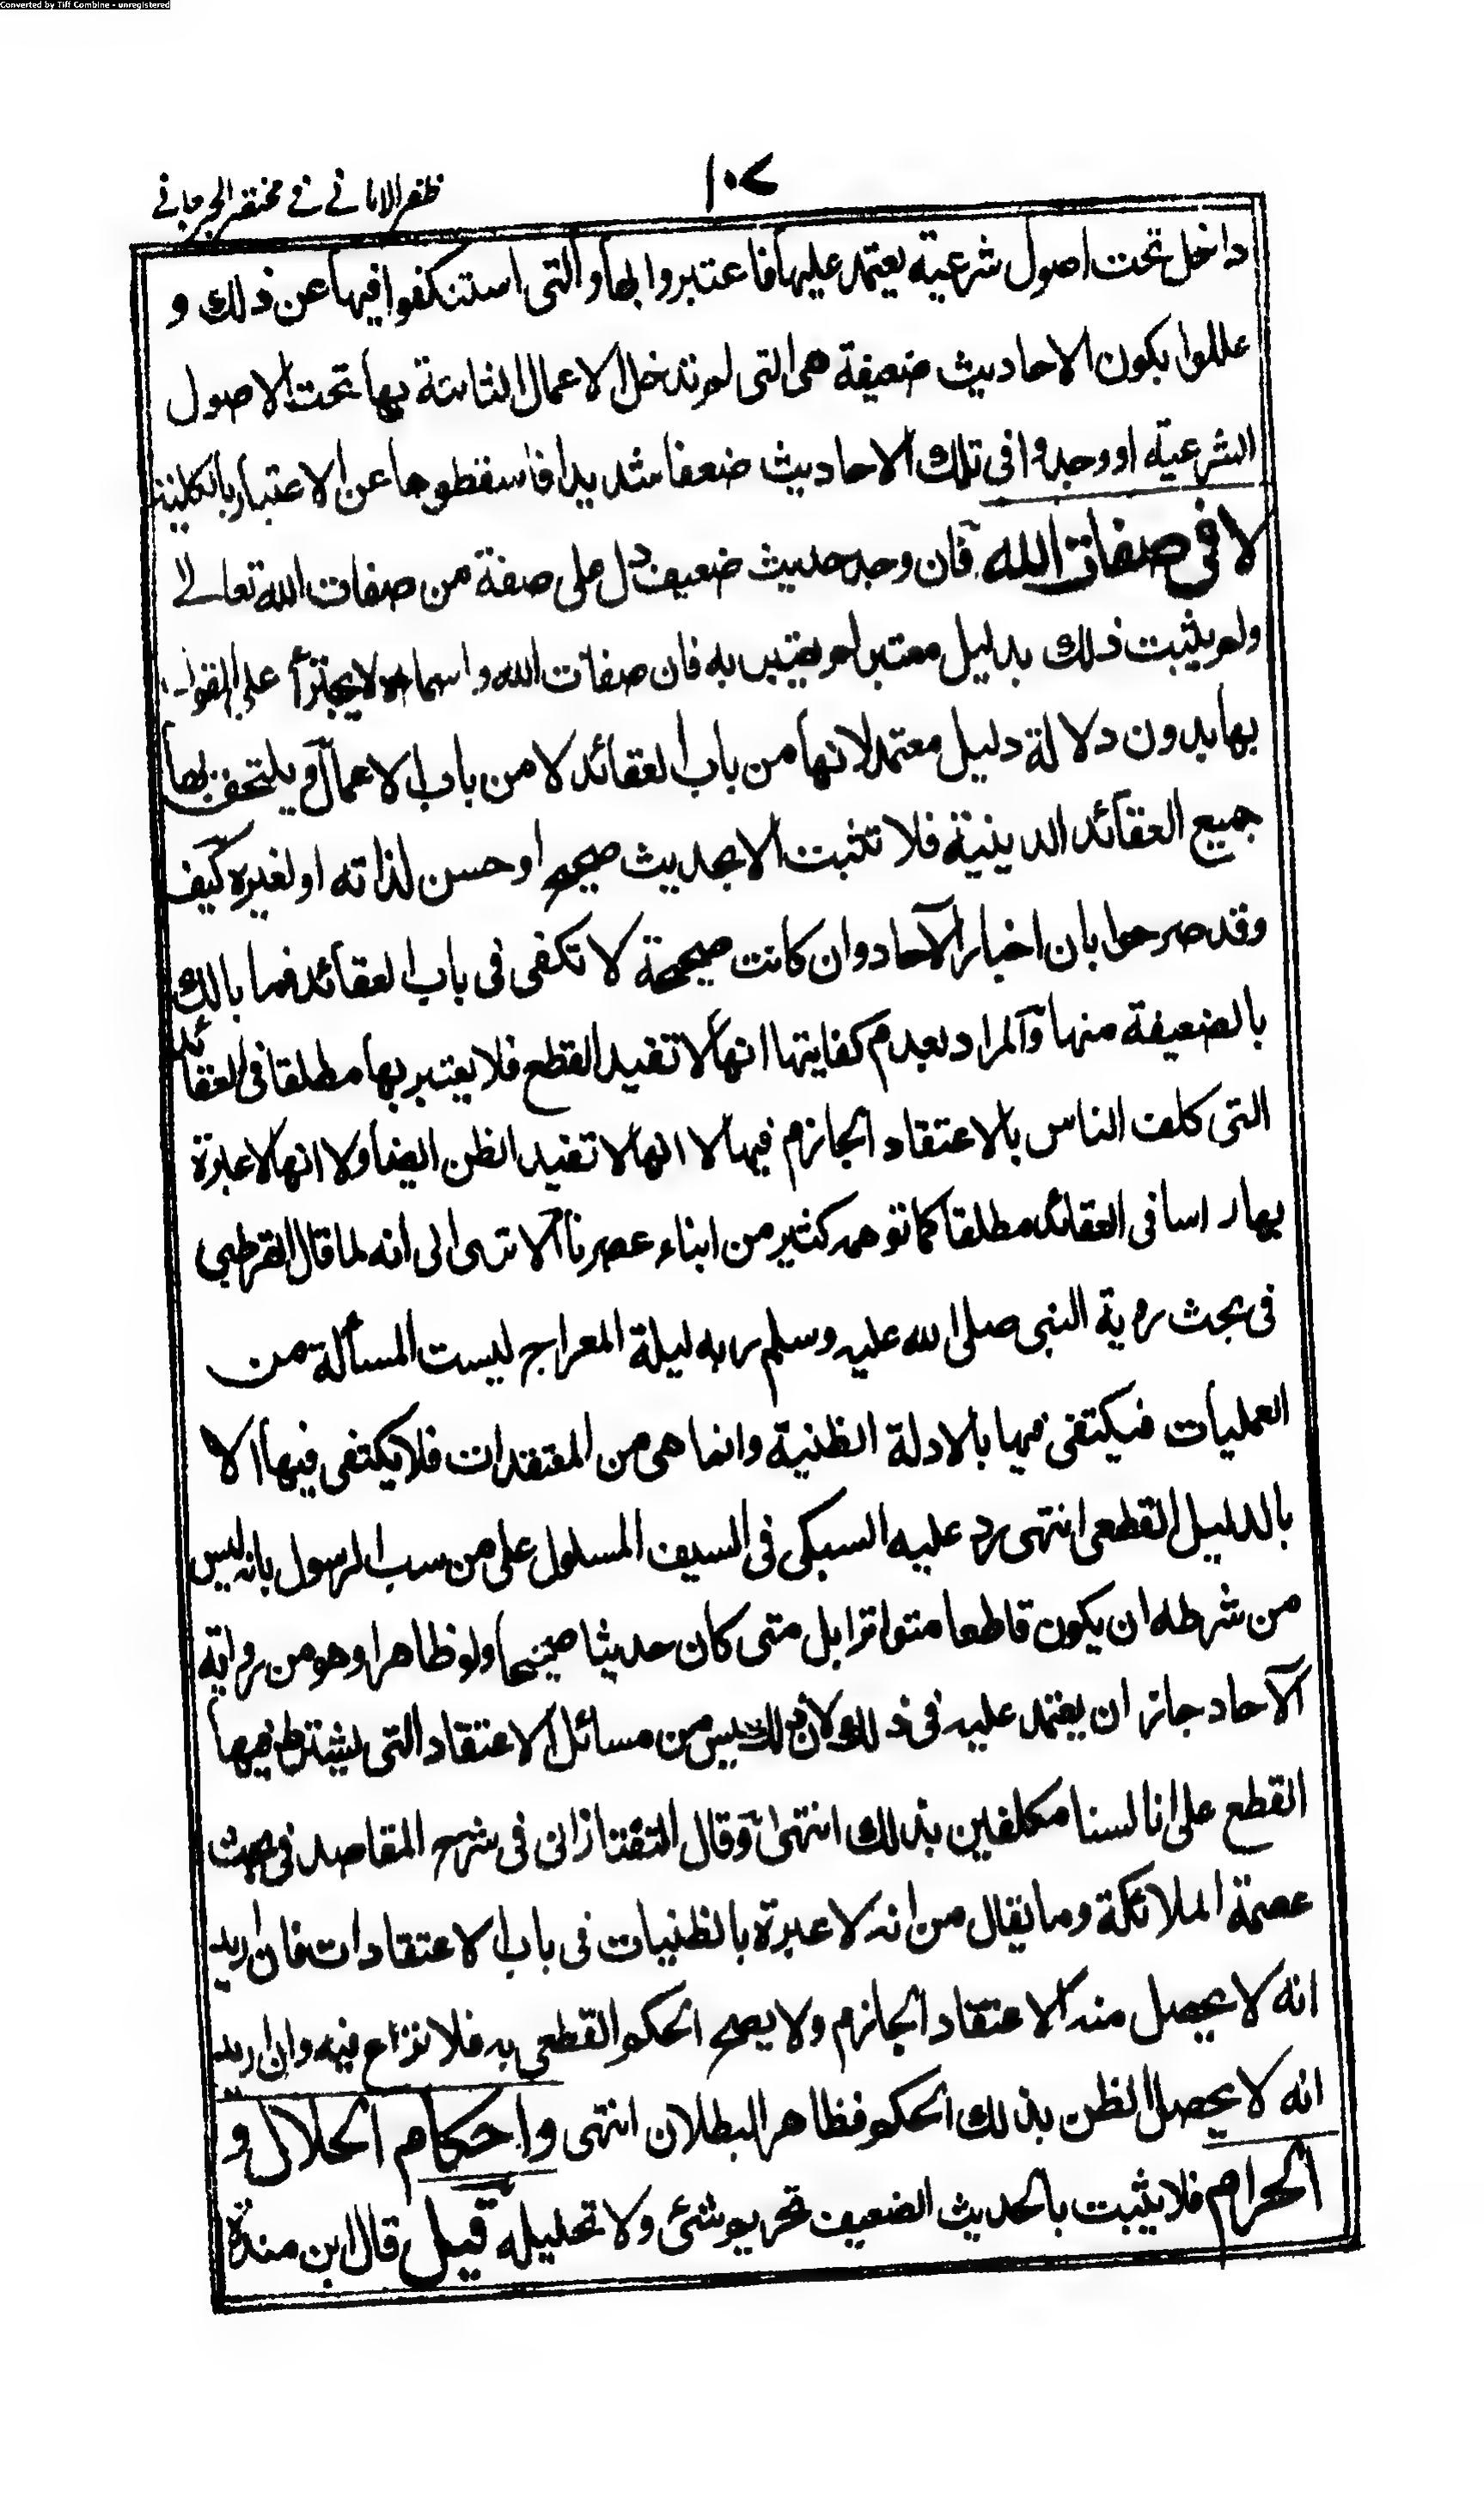 Converted by Tiff Combine - unregistered
ظفر الامانے فے مختصر الجرجانے
١٠٧
داخل تحت اصول شرعية يعتمد عليها فاعتبروا بها والتى استنكفوا فيها عن ذلك و
عللوا بكون الاحاديث ضعيفة هى التى لم تدخل الاعمال الثابتة بها تحت الاصول
الشرعية او وجدوا فى تلك الاحاديث ضعفا شديدا فاسقطوها عن الاعتبار بالكلية
لا فى صفات الله فان وجد حديث ضعيف دل على صفة من صفات الله تعالے
ولم يثبت ذلك بدليل معتبر لم يعتبر به فان صفات الله واسماءه لا يجترأ على القول
بها بدون دلالة دليل معتمد لانها من باب العقائد لا من باب الاعمال ويلتحق بها
جميع العقائد الدينية فلا تثبت الا بحديث صحيح او حسن لذاته او لغيره كيف
وقد صرحوا بان اخبار الآحاد وان كانت صحيحة لا تكفى فى باب العقائد فما بالك
بالضعيفة منها والمراد بعدم كفايتها انها لا تفيد القطع فلا يعتبر بها مطلقا فى العقائد
التى كلف الناس بالاعتقاد الجازم فيها لا انها لا تفيد الظن ايضا ولا انها لا عبرة
بها راسا فى العقائد مطلقا كما توهمه كثير من ابناء عصرنا الا ترى الى انه لما قال القرطبى
فى بحث روية النبى صلى الله عليه وسلم ربه ليلة المعراج ليست المسألة من
العمليات فيكتفى فيها بالادلة الظنية وانما هى من المعتقدات فلا يكتفى فيها الا
بالدليل القطعى انتهى رد عليه السبكى فى السيف المسلول على من سب الرسول بانه ليس
من شرطه ان يكون قاطعا متواترا بل متى كان حديثا صحيحا ولو ظاهرا وهو من رواية
الآحاد جاز ان يعتمد عليه فى ذلك لان ذلك ليس من مسائل الاعتقاد التى يشترط فيها
القطع على انا لسنا مكلفين بذلك انتهى وقال التفتازانى فى شرح المقاصد فى بحث
عصمة الملائكة وما يقال من انه لا عبرة بالظنيات فى باب الاعتقادات فان اريد
انه لا يحصل منه الاعتقاد الجازم ولا يصح الحكم القطعى به فلا نزاع فيه وان اريد
انه لا يحصل الظن بذلك الحكم فظاهر البطلان انتهى واحكام الحلال و
الحرام فلا يثبت بالحديث الضعيف تحريم شئ ولا تحليله قيل قال ابن مندة